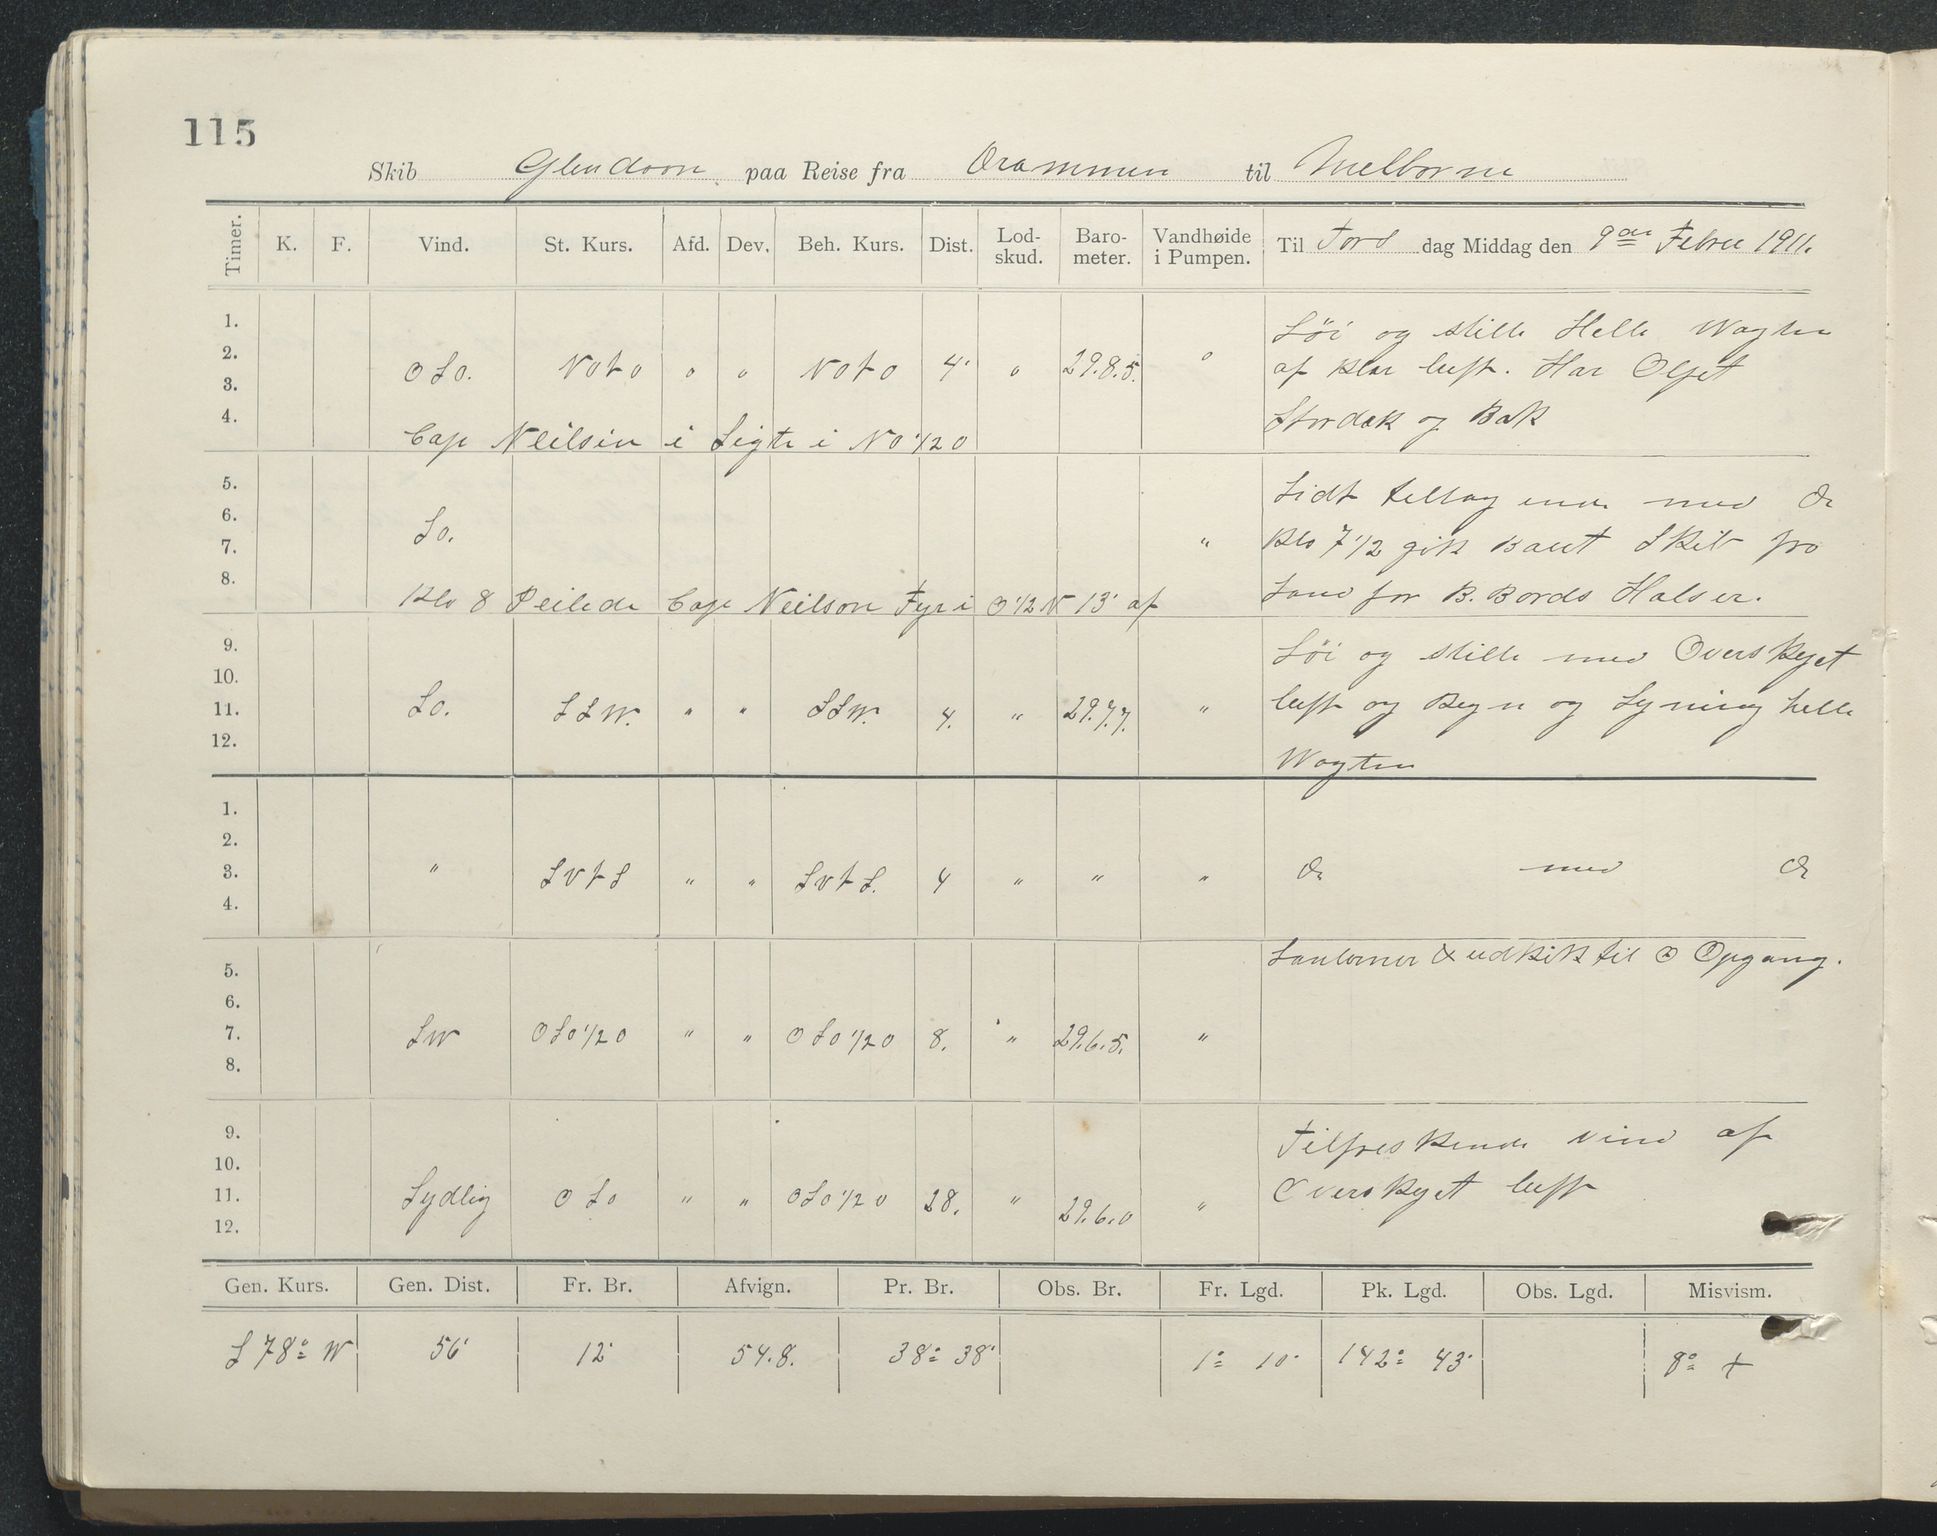 115
Skib Glendoon paa Reise fra Drammen til Melborne
Timer. K. F. Vind. St. Kurs. Afd. Dev. Beh. Kurs. Dist. Lod-skud. Baro-meter. Vandhøide i Pumpen. Til Tors dag Middag den 9de Febru 1911.
1. Løi og stille Helle Wagten
2. OSO. NOtO " " NOtO 4' " 29.8.5. " af klar luft. Har Oljet
3.
4. Stordæk og Bak
Cap Neilsin i Sigte i NO 1/2 O
5. Lidt tiltagende med do
6.
7. SO. " Klo 7 1/2 gik Baut Skib fra
8. Land for B. Bords Halser.
Klo 8 Peilede Cap Neilson Fyr i O 1/2 N 13' af
9. Løi og stille med Overskyet
10.
11. SO. SSW. " " SSW. 4. " 29.7.7. " luft og Regn og Lyning helle
12. Wagten
1.
2.
3. " SVtS " " SVtS. 4 " " " do med do
4.
Lanterner & udkik til O Opgang.
5.
6.
7. SW OSO 1/2 O " " OSO 1/2 O 8. " 29.6.5. "
8.
9. Tilfreskende vind af
10.
11. Sydlig OSO " " OSO 1/2 O 28. " 29.6.0 " Overskyet luft
12.
Gen. Kurs. Gen. Dist. Fr. Br. Afvign. Pr. Br. Obs. Br. Fr. Lgd. Pk. Lgd. Obs. Lgd. Misvism.
S 78° W 56' 12' 54.8. 38° 38' 1° 10' 142° 43' 8° +